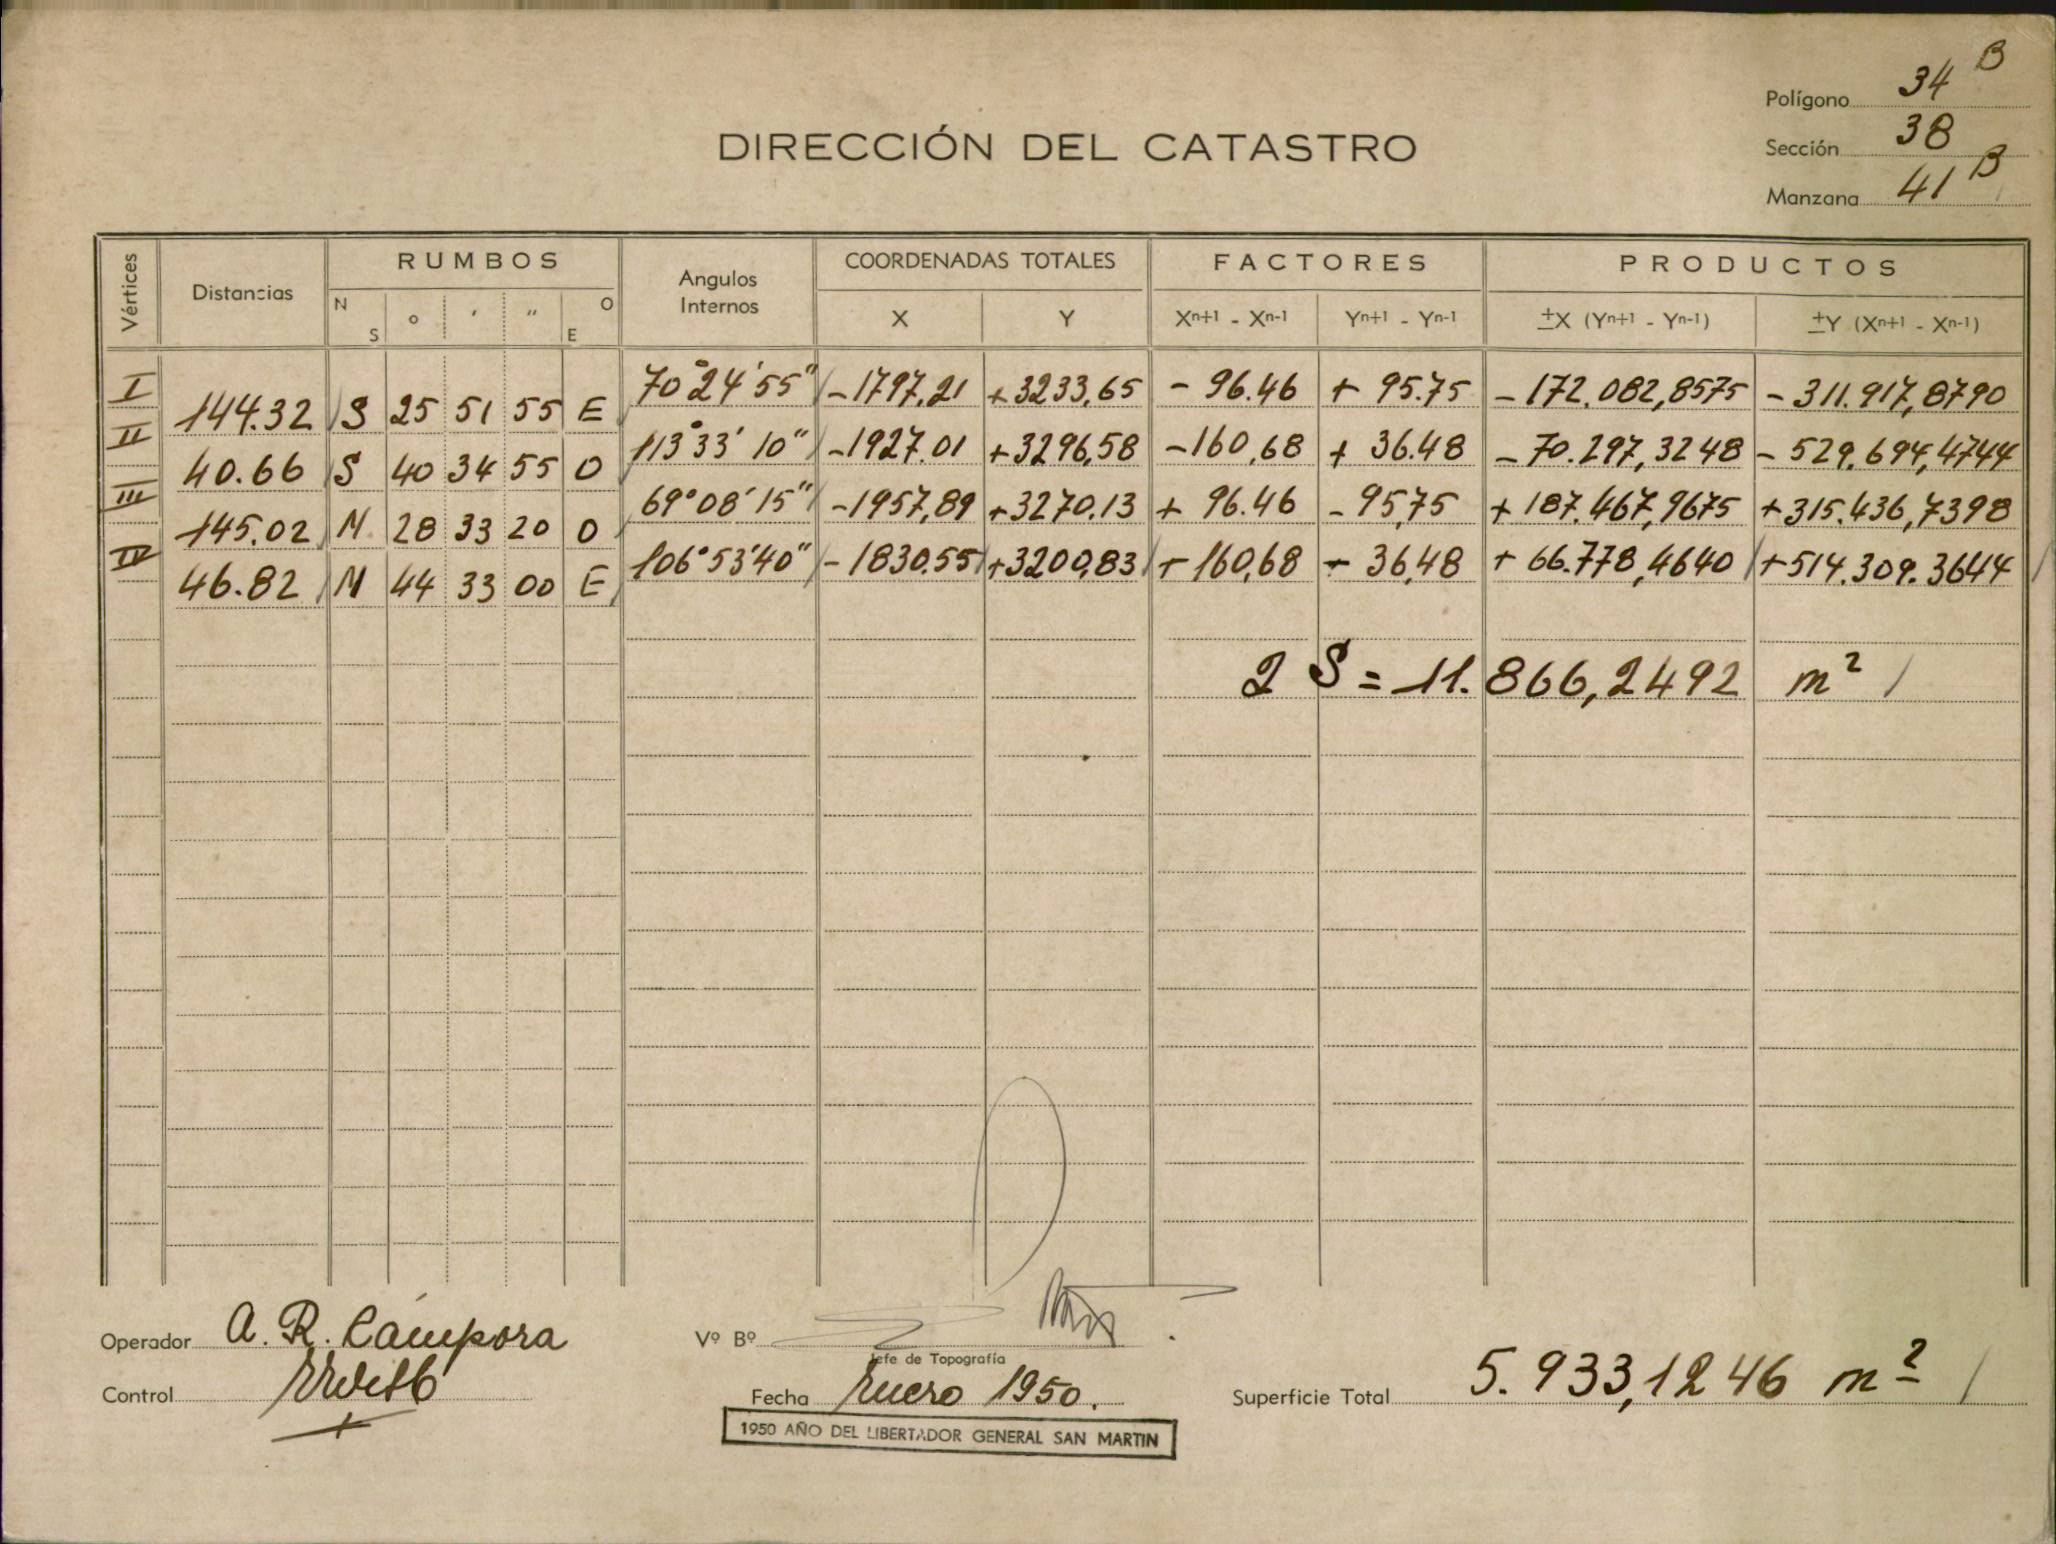 Polígono 34 B
Sección 38
Manzana 41 B
DIRECCIÓN DEL CATASTRO
Vértices Distancias RUMBOS Angulos Internos COORDENADAS TOTALES FACTORES PRODUCTOS
N S o ' " O E X Y Xn+1 - Xn-1 Yn+1 - Yn-1 ±X (Yn+1 - Yn-1) ±Y (Xn+1 - Xn-1)
I 144.32 S 25 51 55 E 70°24'55" -1797,21 +3233,65 - 96.46 + 95.75 -172.082,8575 -311.917,8790
II 40.66 S 40 34 55 O 113°33'10" -1927.01 +3296,58 -160,68 + 36.48 -70.297,3248 - 529.694,4744
III 145.02 N 28 33 20 O 69°08'15" -1957,89 +3270.13 + 96.46 - 95,75 + 187.467,9675 +315.436,7398
IV 46.82 N 44 33 00 E 106°53'40" -1830.55 +3200,83 + 160,68 - 36,48 + 66.778,4640 +514.309.3644
2 S = 11.866,2492 m²
Operador A. R. Cámpora
Vº Bº
Jefe de Topografía
Control
Fecha Enero 1950.
Superficie Total 5.933,1246 m²
1950 AÑO DEL LIBERTADOR GENERAL SAN MARTIN